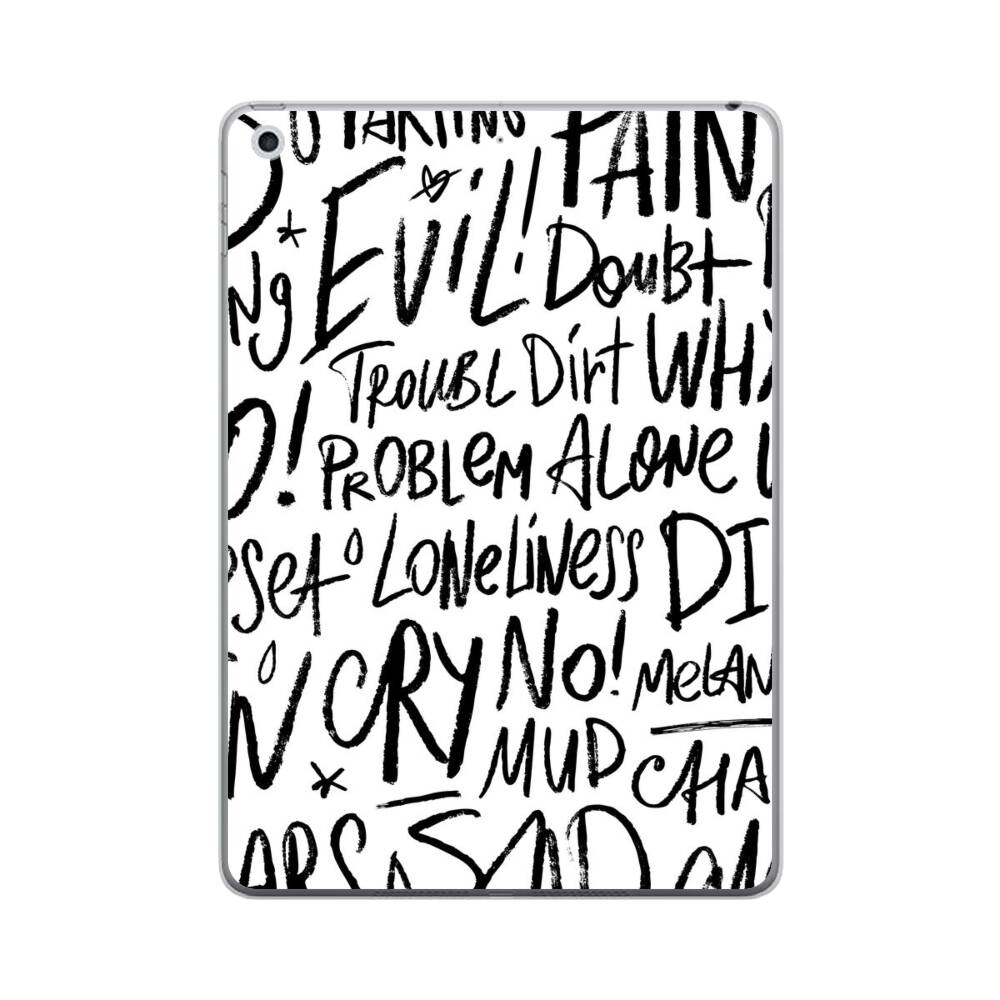 PAIN
EVIL! Doubt
TROUBL Dirt WHY
PROBLEM ALONE
LONELINESS DI
CRY NO! MELAN
MUD CHA
SAD